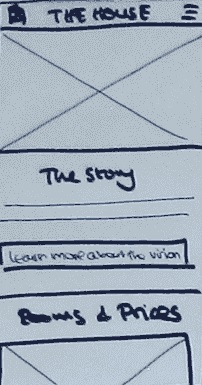 THE HOUSE
The Story
Learn more about the vision
Rooms & Prices